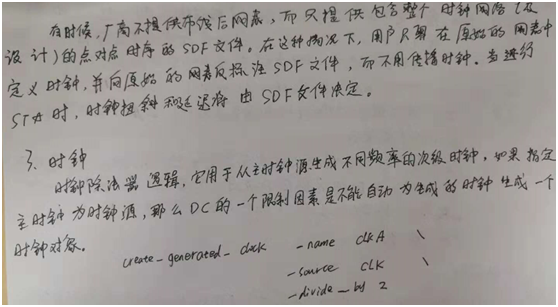 有时候,厂商不提供布线后网表,而只提供包含整个时钟网络(及
设计)的点对点时序的SDF文件。在这种情况下,用户只要在原始的网表中
定义时钟,并向原始的网表反标注SDF文件,而不用传播时钟。当进行
STA时,时钟扭斜和延迟将由SDF文件决定。
3. 时钟
时钟除法器逻辑,它用于从主时钟源生成不同频率的次级时钟,如果指定
主时钟为时钟源,那么DC的一个限制因素是不能自动为生成的时钟生成一个
时钟对象。
create_generated_clock -name clkA \
-source CLK \
-divide_by 2